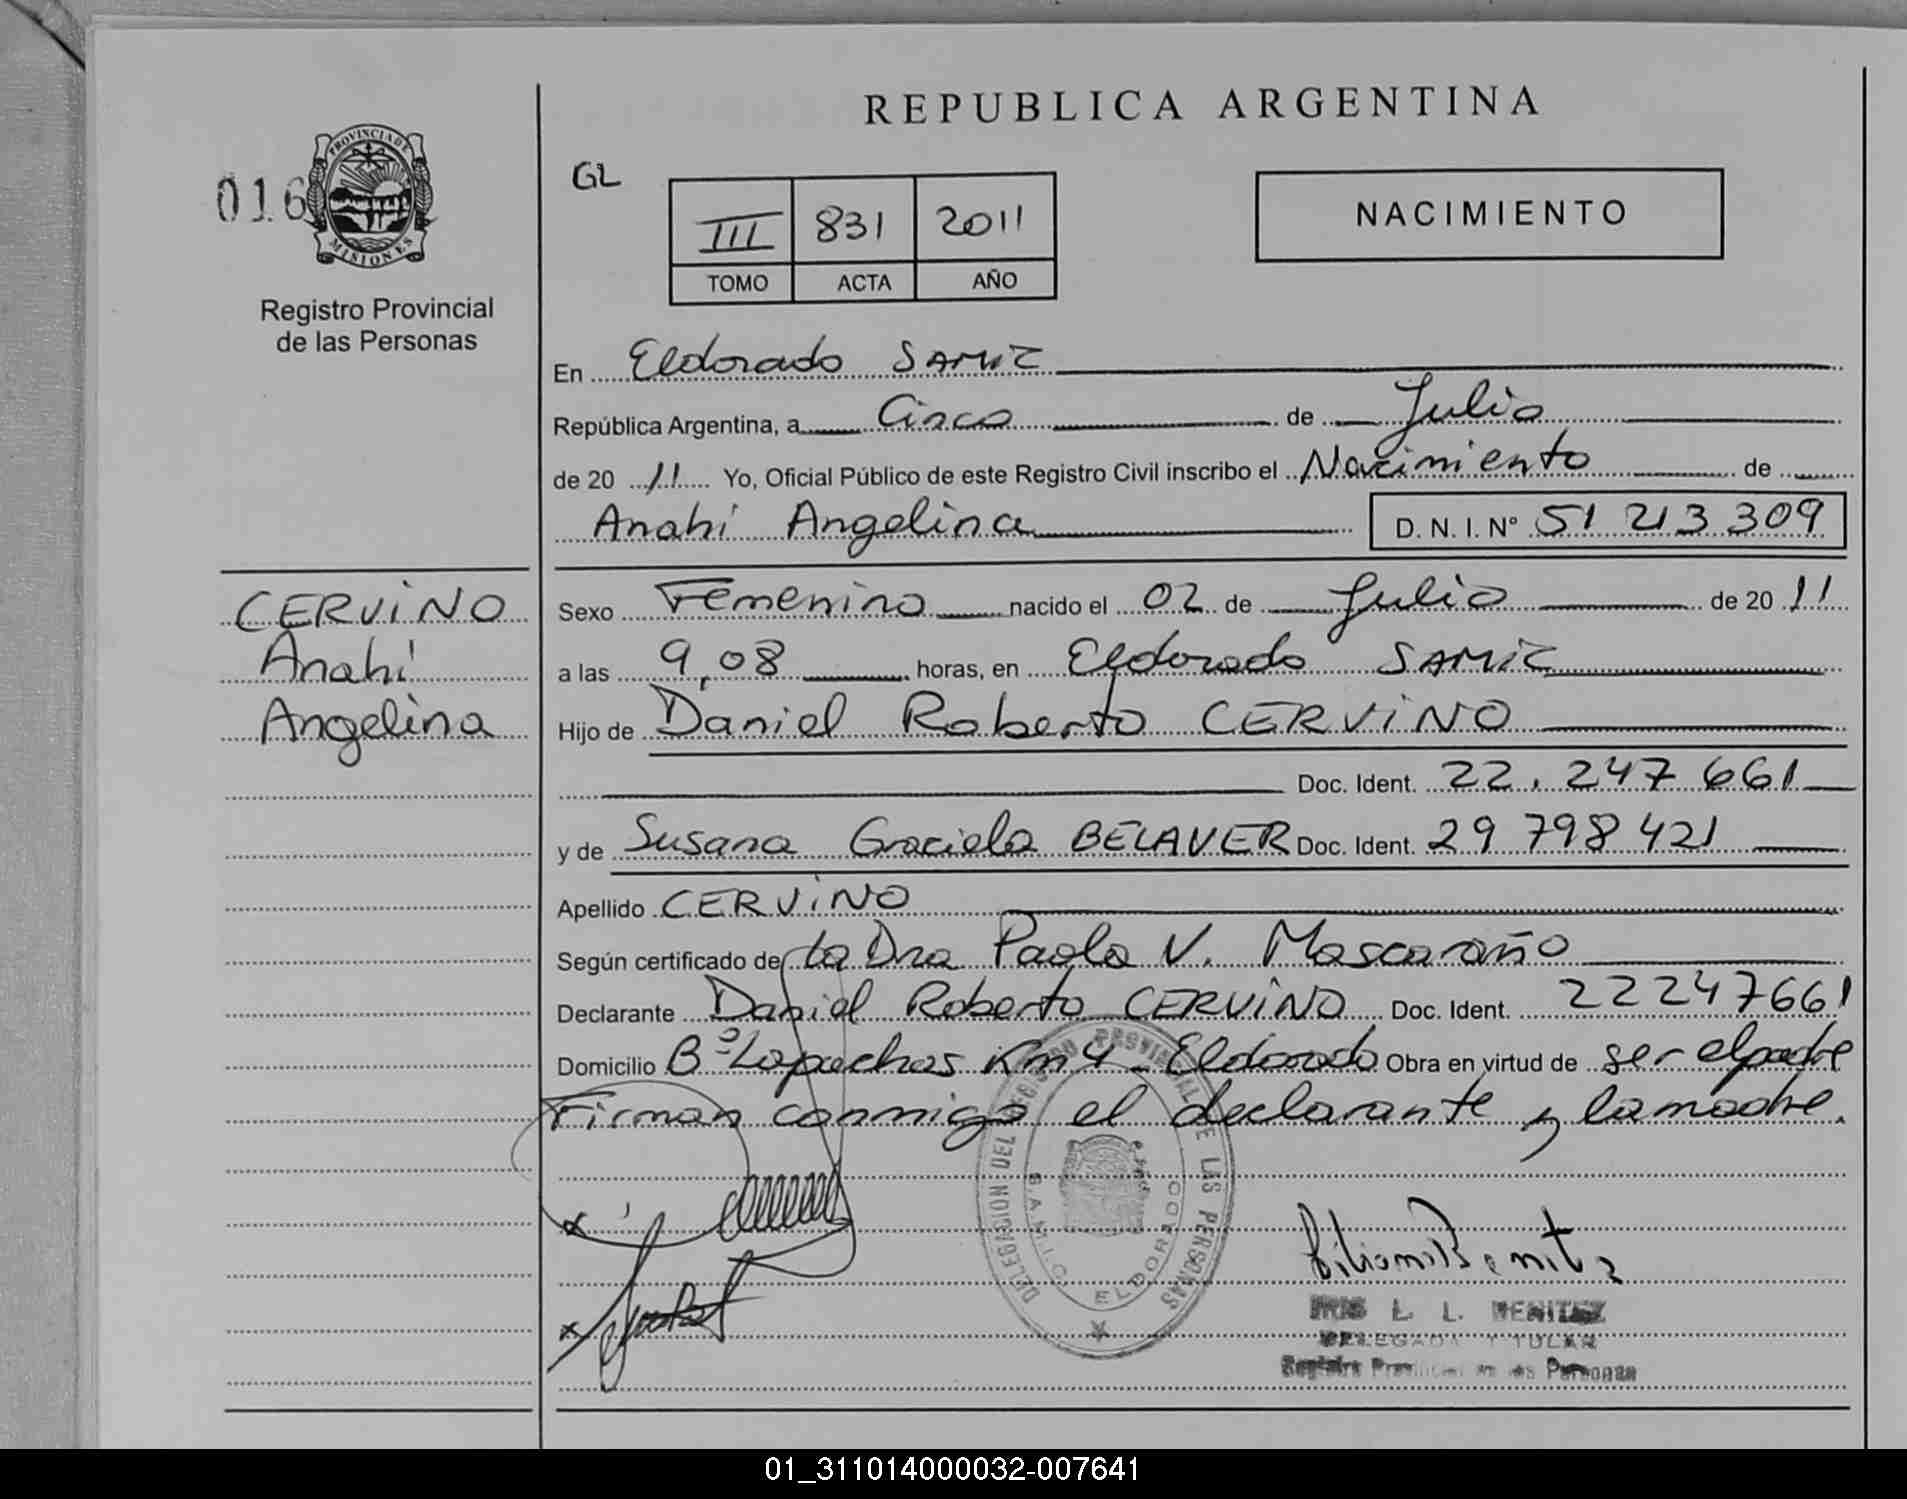 REPUBLICA ARGENTINA
016
PROVINCIA DE
MISIONES
Registro Provincial
de las Personas
GL
III 831 2011
TOMO ACTA AÑO
NACIMIENTO
En Eldorado SAMIC
República Argentina, a Cinco de Julio
de 20 11 Yo, Oficial Público de este Registro Civil inscribo el Nacimiento de
Anahi Angelina D. N. I. N° 51 213 309
CERViNO
Anahi
Angelina
Sexo Femenino nacido el 02 de Julio de 20 11
a las 9,08 horas, en Eldorado SAMIC
Hijo de Daniel Roberto CERViNO
Doc. Ident. 22.247 661
y de Susana Graciela BELAVER Doc. Ident. 29 798 421
Apellido CERViNO
Según certificado de la Dra Paola V. Mascaraño
Declarante Daniel Roberto CERViNO Doc. Ident. 22247661
Domicilio B° Lapachos Km 4 - Eldorado Obra en virtud de ser el padre
Firman conmigo el declarante y la madre.
DELEGACION DEL REGISTRO PROVINCIAL DE LAS PERSONAS
S.A.M.I.C. ELDORADO
x
x
IRIS L. L. BENITEZ
DELEGADA TITULAR
Registro Provincial de las Personas
01_311014000032-007641